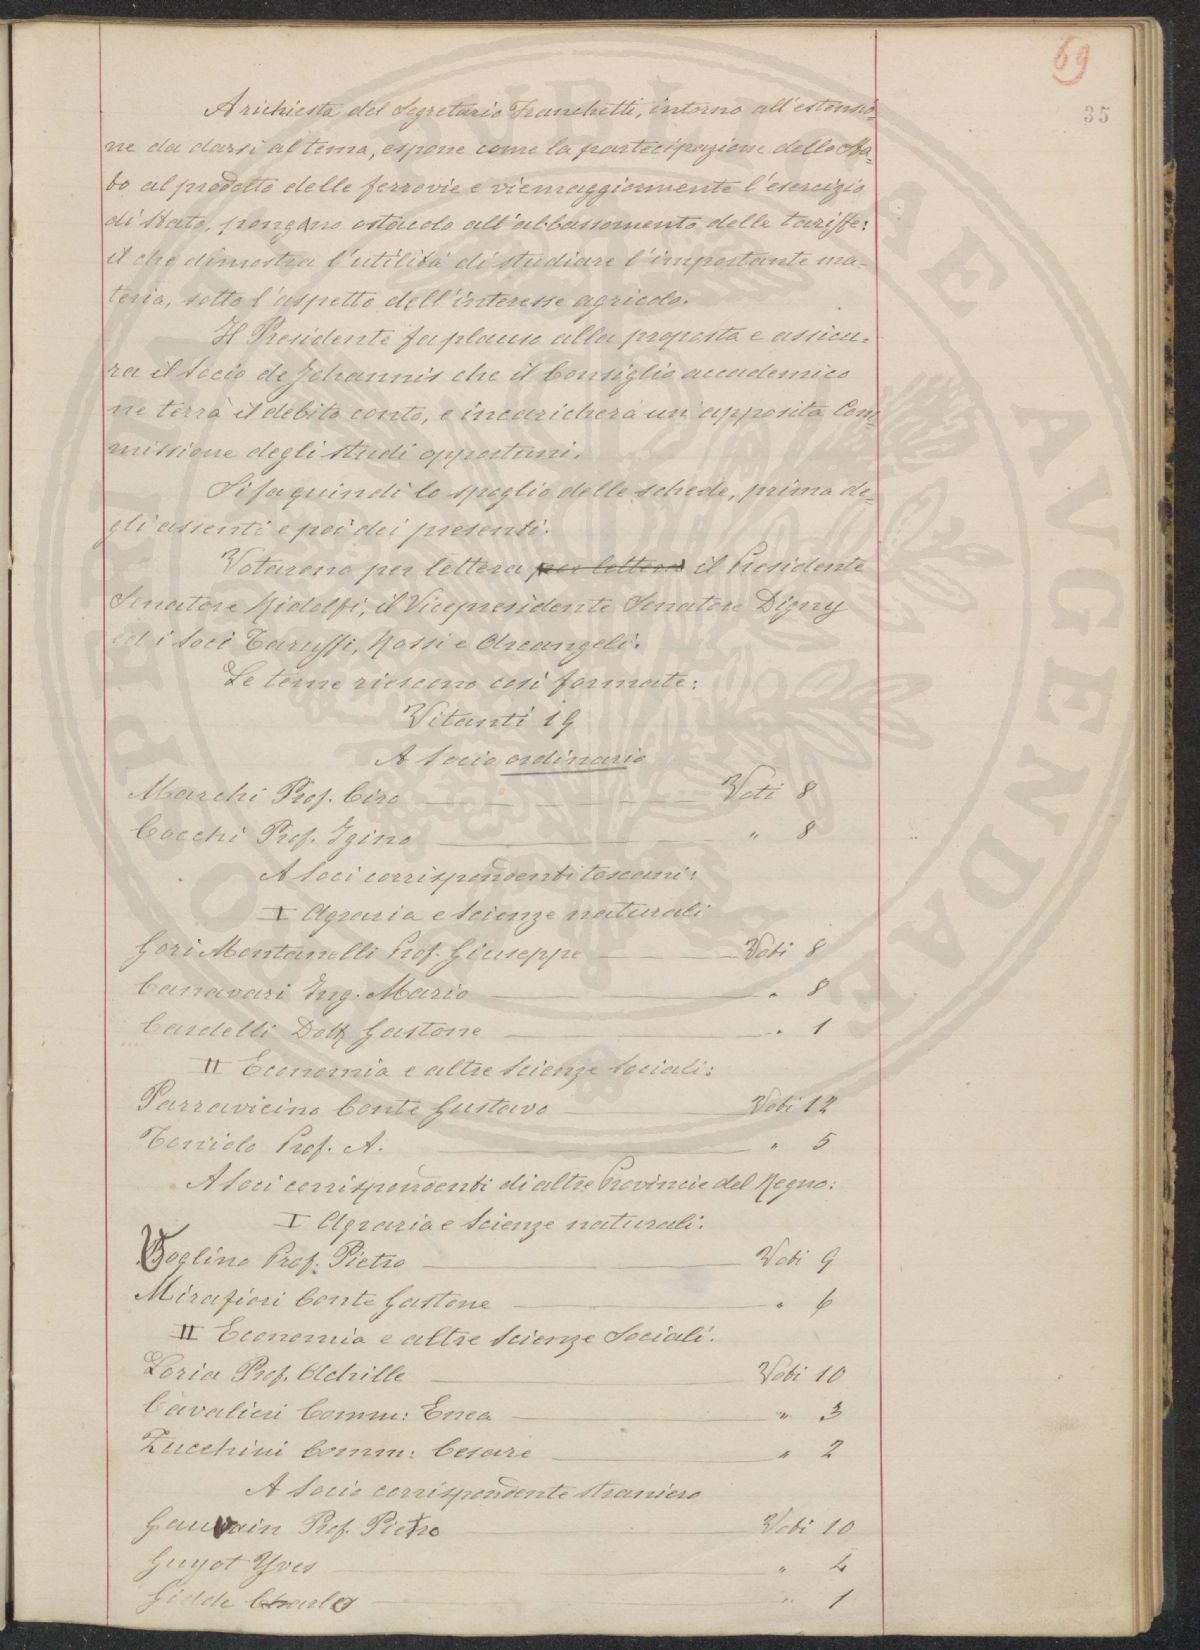 69
35
A richiesta del Segretario Franchetti, intorno all'estensio=
ne da darsi al tema, espone come la partecipazione dello Sta=
to al prodotto delle ferrovie e viemaggiormente l'esercizio
di Stato, pongano ostacolo all'abbassamento delle tariffe:
il che dimostra l'utilità di studiare l'importante ma=
teria, sotto l'aspetto dell'interesse agricolo.
Il Presidente fa plauso alla proposta e assicu=
ra il Socio de Johannis che il Consiglio accademico
ne terrà il debito conto, e incaricherà un'apposita Com=
missione degli studi opportuni.
Si fa quindi lo spoglio delle schede, prima de=
gli assenti e poi dei presenti.
Votarono per lettera per lettera il Presidente
Senatore Ridolfi, il Vicepresidente Senatore Digny
ed i Soci Taruffi, Rossi e Arcangeli.
Le terne riescono così formate:
Votanti 19
A Socio ordinario
Marchi Prof. Ciro Voti 8
Cocchi Prof. Igino " 8
A Soci corrispondenti toscani:
I Agraria e Scienze naturali
Gori Montanelli Prof. Giuseppe Voti 8
Canavari Ing. Mario " 8
Cardelli Dott Gastone " 1
II Economia e altre Scienze Sociali:
Parravicino Conte Gustavo Voti 12
Toniolo Prof. A. " 5
A Soci corrispondenti di altre Provincie del Regno:
I Agraria e Scienze naturali.
Voglino Prof. Pietro Voti 9
Mirafiori Conte Gastone " 6
II Economia e altre Scienze Sociali.
Loria Prof. Achille Voti 10
Cavalieri Comm: Enea " 3
Zucchini Comm: Cesare " 2
A Socio corrispondente straniero
Gauwain Prof. Pietro Voti 10
Guyot Yves " 4
Gidde Carlo " 1
PUBLICAE AUGENDAE
PROSPERITATI